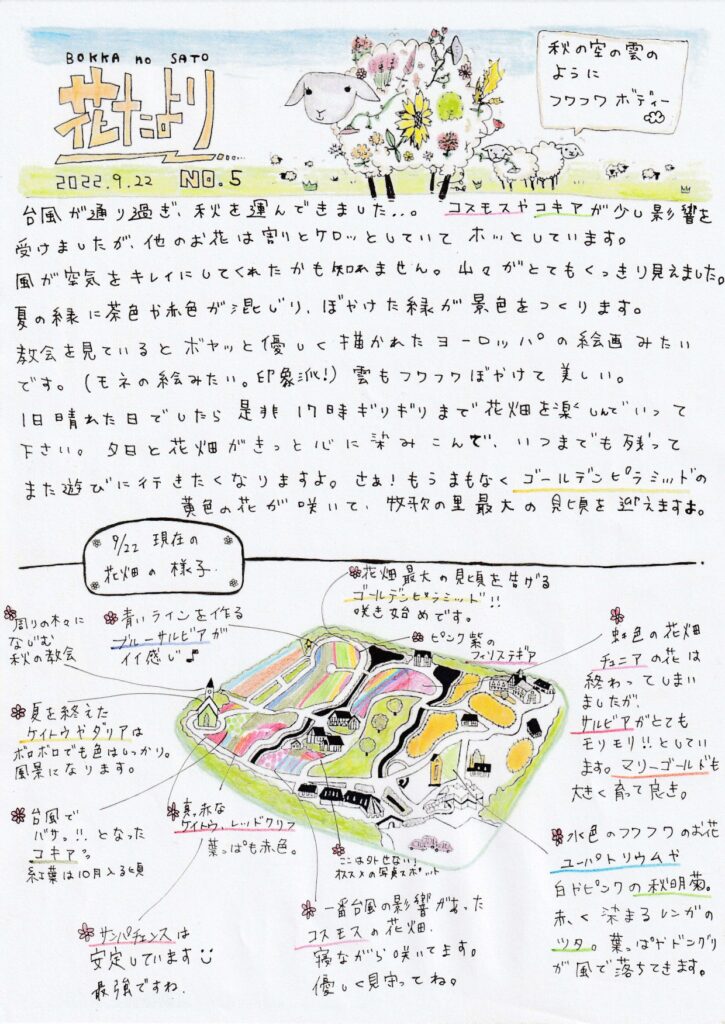 BOKKA no SATO
花だより
2022.9.22 NO.5
秋の空の雲の
ように
フワフワボディー
台風が通り過ぎ、秋を運んできました...。コスモスやコキアが少し影響を
受けましたが、他のお花は割りとケロッとしていてホッとしています。
風が空気をキレイにしてくれたかも知れません。山々がとてもくっきり見えました。
夏の緑に茶色や赤色が混じり、ぼやけた緑が景色をつくります。
教会を見ているとボヤッと優しく描かれたヨーロッパの絵画みたい
です。(モネの絵みたい。印象派!)雲もフワフワぼやけて美しい。
1日晴れた日でしたら是非17時ギリギリまで花畑を楽しんでいって
下さい。夕日と花畑がきっと心に染みこんで、いつまでも残って
また遊びに行きたくなりますよ。さぁ!もうまもなくゴールデンピラミッドの
黄色の花が咲いて、牧歌の里最大の見頃を迎えますよ。
9/22現在の
花畑の様子.
花畑最大の見頃を告げる
ゴールデンピラミッド!!
咲き始めです。
周りの木々に
なじむ
秋の教会
青いラインを作る
ブルーサルビアが
イイ感じ♪
ピンク紫の
フィソステギア
虹色の花畑
チェニアの花は
終わってしまい
ましたが、
サルビアがとても
モリモリ!!としてい
ます。マリーゴールドも
大きく育って良き。
夏を終えた
ケイトウやダリアは
ボロボロでも色はしっかり。
風景になります。
台風で
バサッ!!となった
コキアっ
紅葉は10月入る頃
真っ赤な
ケイトウ、レッドクリフ
葉っぱも赤色。
ここは外せない!
オススメの写真スポット
水色のフワフワのお花
ユーパトリウムや
白やピンクの秋明菊。
赤く染まるレンガの
ツタ。葉っぱやドングリ
が風で落ちてきます。
サンパチェンスは
安定しています
最強ですね.
一番台風の影響があった
コスモスの花畑.
寝ながら咲いてます。
優しく見守ってね。